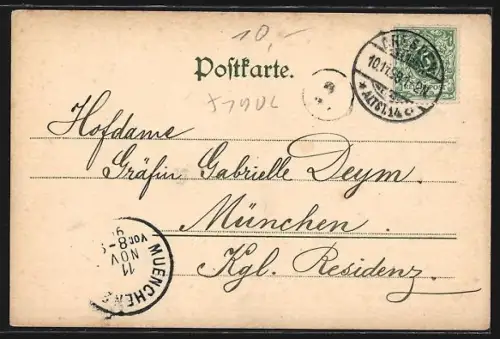 10,-
Postkarte.
DRESDEN
10.11.98. 1-2N
* ALTST. 14 c
Hofdame
Gräfin Gabrielle Deym.
München
Kgl. Residenz.
MUENCHEN 2
11
NOV
VOR 8-9